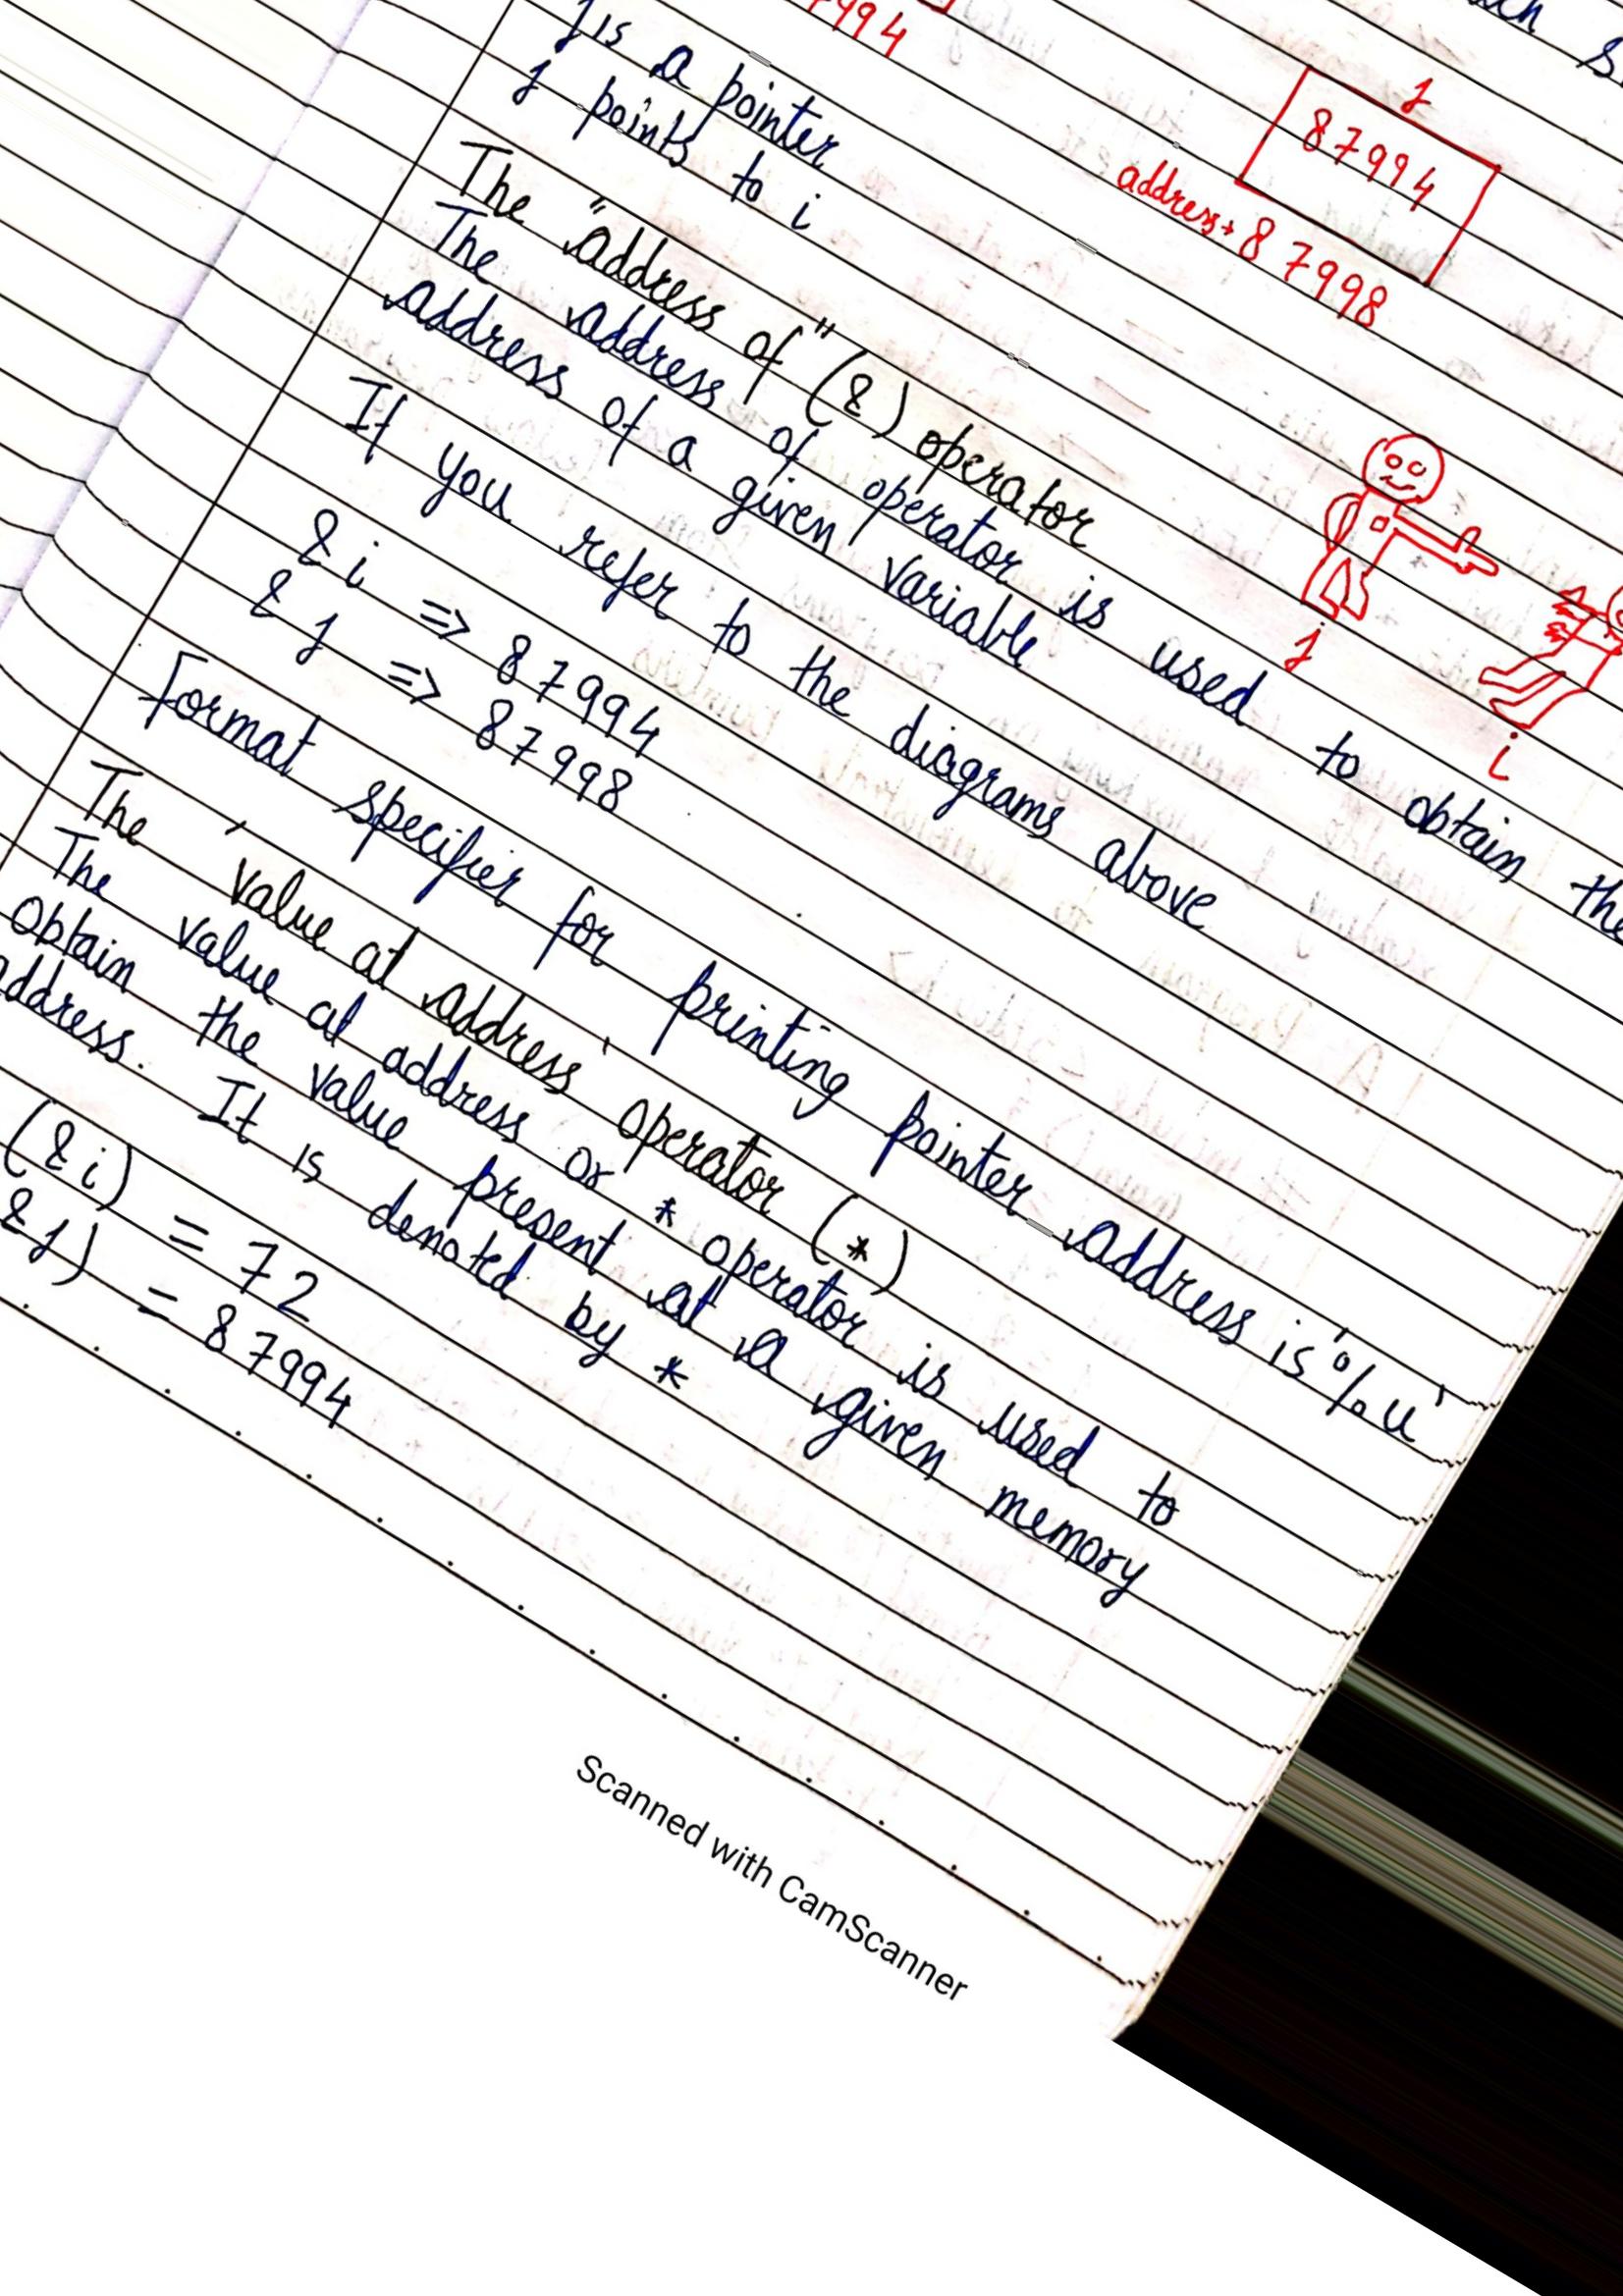 7994
j
87994
address→87998
j is a pointer
j points to i
The "address of" (&) operator
The address of operator is used to obtain the
address of a given variable
If you refer to the diagrams above
j
i
&i => 87994
&j => 87998
Format specifier for printing pointer address is '%u'
The 'value at address' operator (*)
The value at address or * operator is used to
obtain the value present at a given memory
address. It is denoted by *
(&i) = 72
&j) = 87994
Scanned with CamScanner